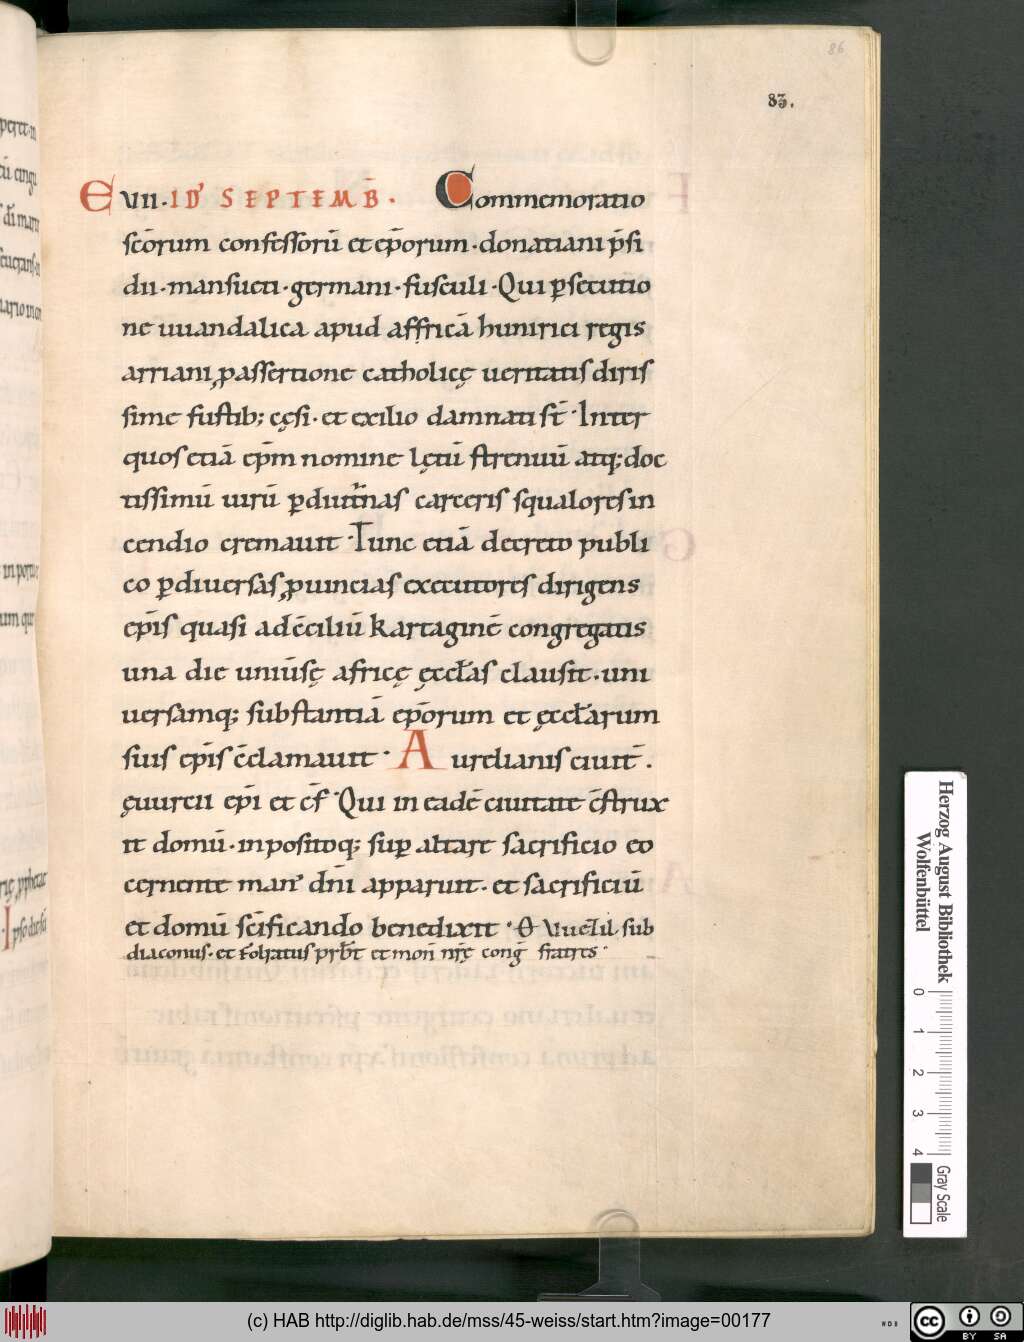 86
83.
E VII·ID' SEPTEMB̄. Commemoratio
sc̄orum confessorū et ep̄orum·donatiani p̄si
dii·mansueti·germani·fusculi·Qui p̱secutio
ne uuandalica apud affricā hunirici regis
arriani, ꝓ assertione catholicę ueritatis diris
sime fustib; cęsi·et exilio damnati st̄·Inter
quos etiā ep̄m nomine lętū strenuū atq; doc
tissimū uirū ꝑ diut̄nas carceris squalores in
cendio cremauit·Tunc etiā decreto publi
co ꝑ diuersas ꝓuincias executores dirigens
ep̄is quasi ad c̄ciliū kartaginē congregatis
una die uniūsę africę ęccl̄as clausit·uni
uersamq; substantiā ep̄orum et ęccl̄arum
suis ep̄is c̄clamauit· Aurelianis ciuit̄.
ęuurcii ep̄i et cf̄·Qui in eadē ciuitate c̄strux
it domū·inpositoq; suꝑ altare sacrificio eo
cernente man' dn̄i apparuit·et sacrificiū
et domū sc̄ificando benedixit·
sub
diaconus·et folratus prb̄t et mon̄ nr̄ę cong̃ fratres·
Herzog August Bibliothek
Wolfenbüttel
0 1 2 3 4
Gray Scale
(c) HAB http://diglib.hab.de/mss/45-weiss/start.htm?image=00177
WDB
cc BY SA